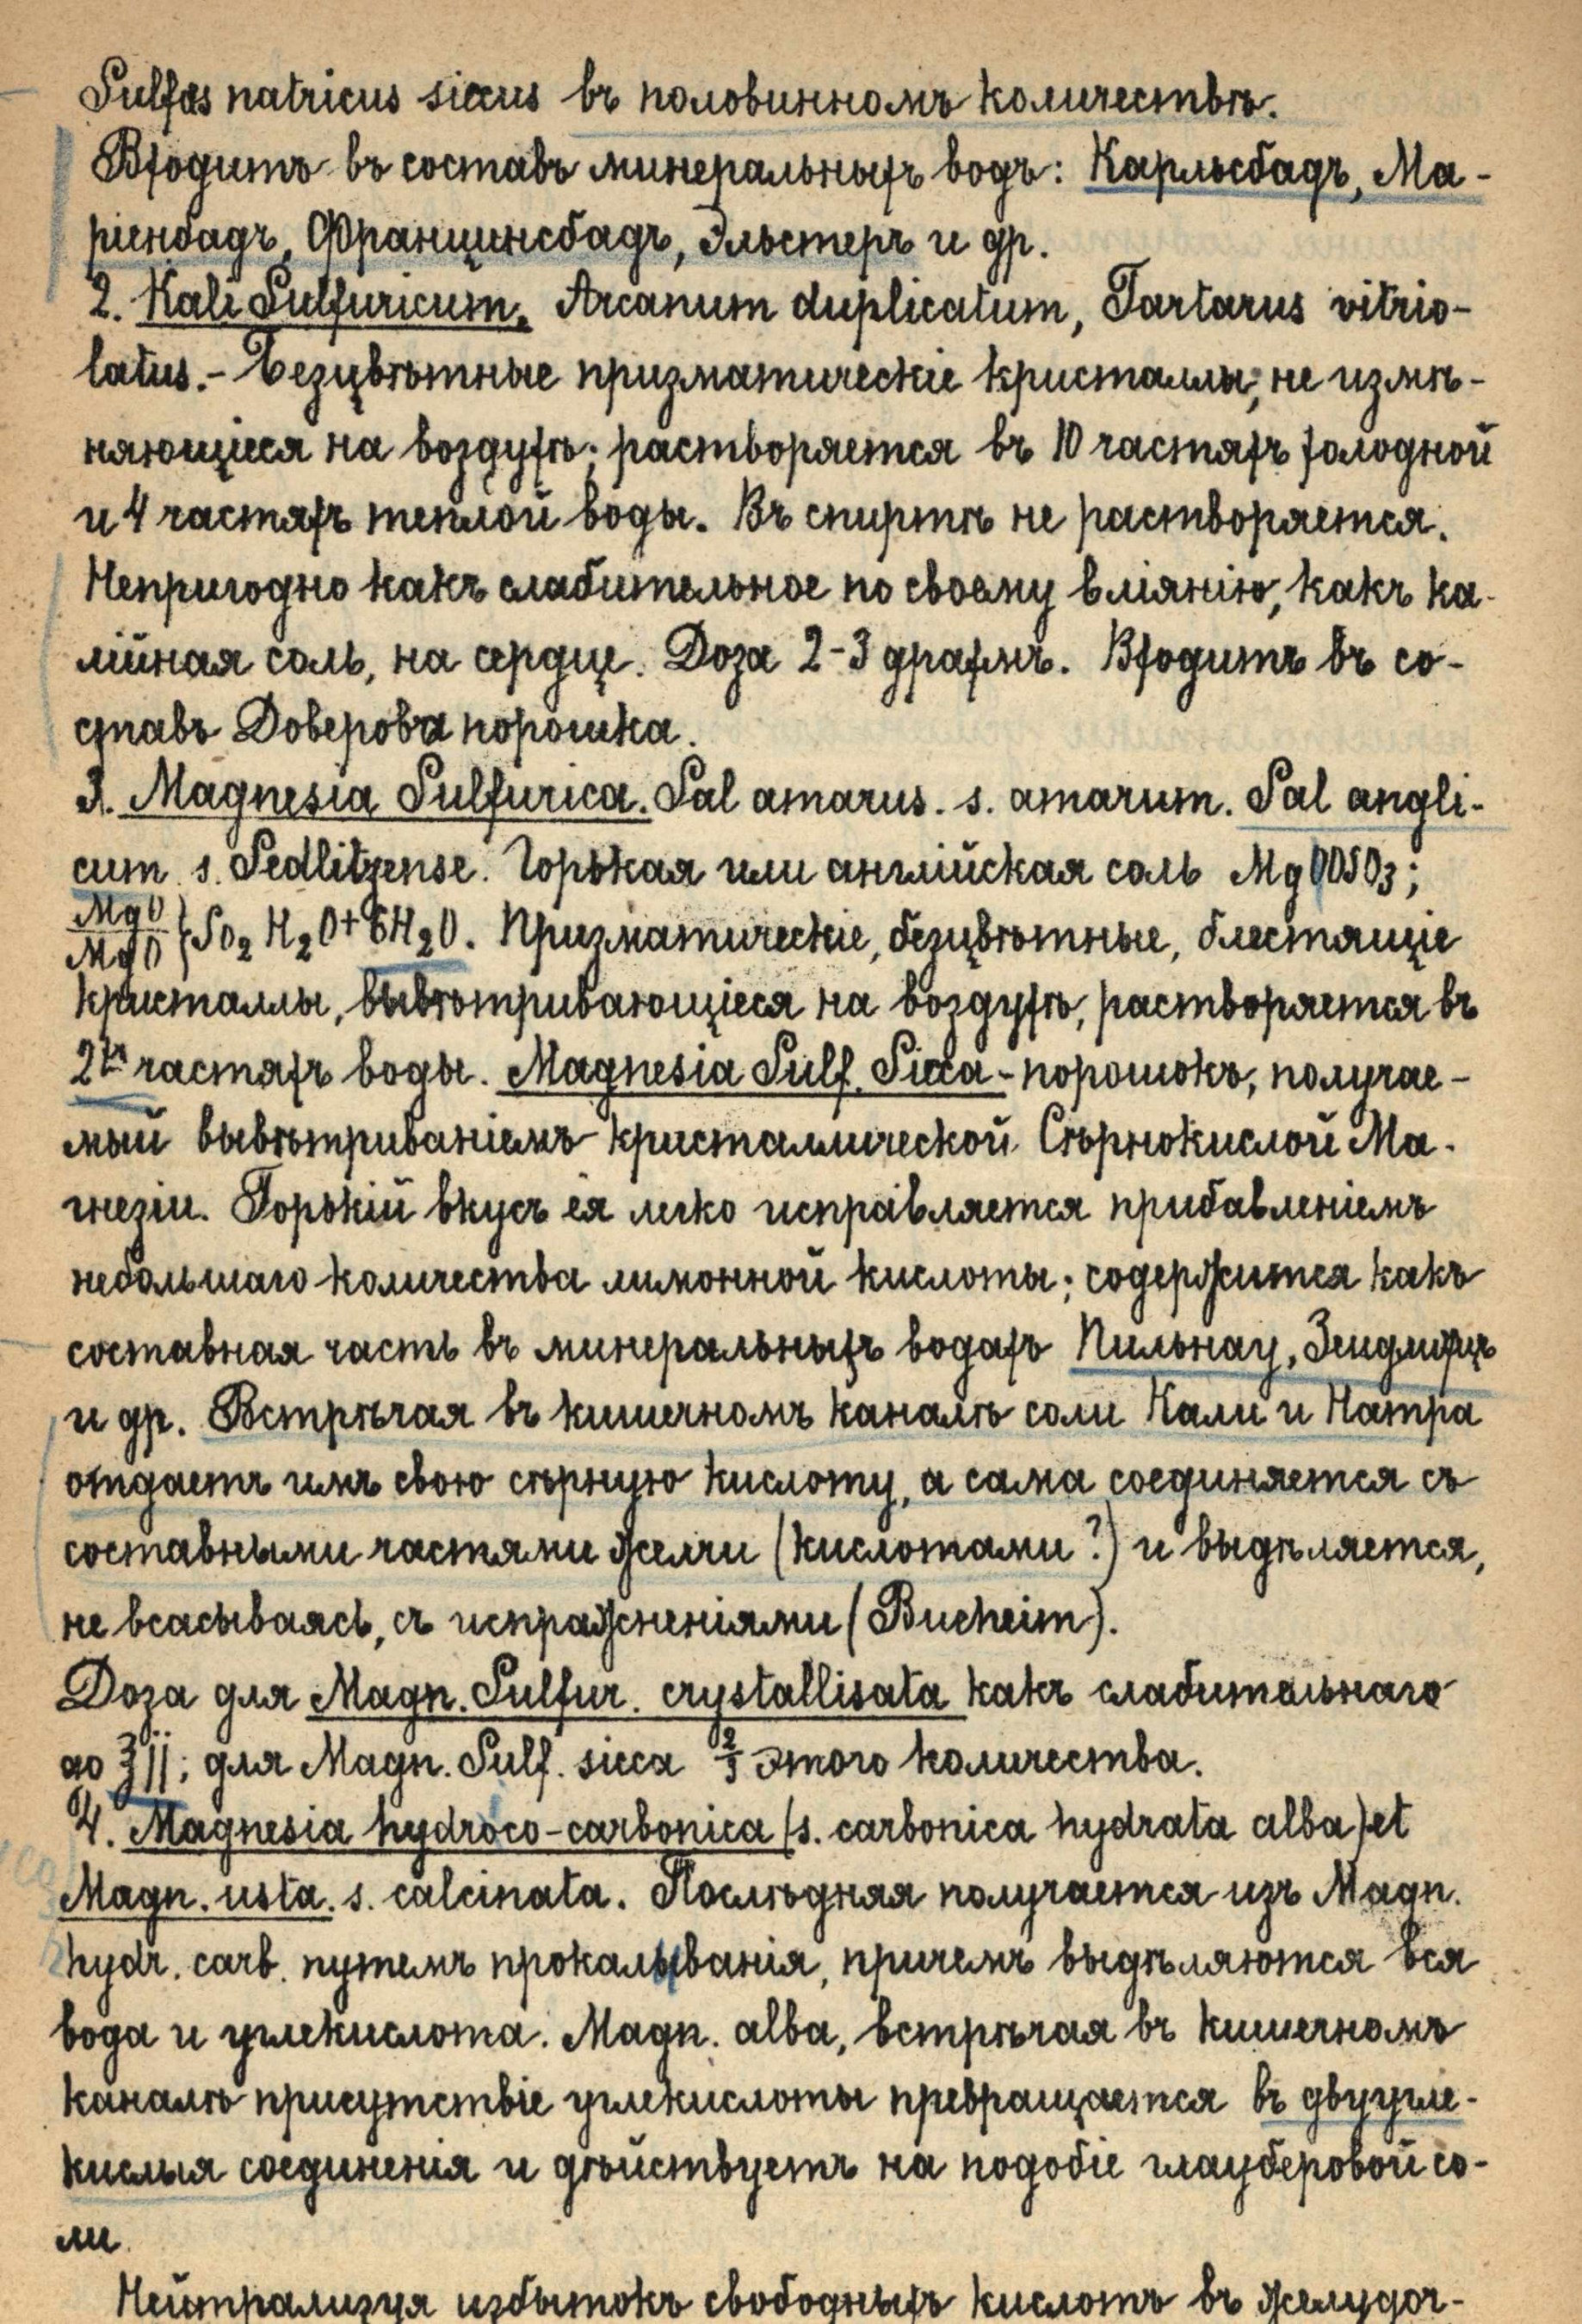 Sulfas natricus siccus въ половинномъ количествѣ.
Входитъ въ составъ минеральныхъ водъ: Карльсбадъ, Ма-
ріенбадъ, Францинсбадъ, Эльстеръ и др.
2. Kali Sulfuricum, Arcanum duplicatum, Tartarus vitrio-
latus.- Безцвѣтные призматическіе кристаллы, не измѣ-
няющіеся на воздухѣ; растворяется въ 10 частяхъ холодной
и 4 частяхъ теплой воды. Въ спиртѣ не растворяется.
Непригодно какъ слабительное по своему вліянію, какъ ка-
лійная соль, на сердце. Доза 2-3 драхмъ. Входитъ въ со-
ставъ Доверова порошка.
3. Magnesia Sulfurica. Sal amarus. s. amarum. Sal angli-
cum s. Sedlitzense. Горькая или англійская соль MgOOSO3;
MgO
MgO } SO2 H2O+6H2O. Призматическіе, безцвѣтные, блестящіе
кристаллы, вывѣтривающіеся на воздухѣ, растворяется въ
2хъ частяхъ воды. Magnesia Sulf. Sicca - порошокъ, получае-
мый вывѣтриваніемъ кристаллической Сѣрнокислой Ма-
гнезіи. Горькій вкусъ ея легко исправляется прибавленіемъ
небольшаго количества лимонной кислоты; содержится какъ
составная часть въ минеральныхъ водахъ Пильнау, Зейдлицъ
и др. Встрѣчая въ кишечномъ каналѣ соли Кали и Натра
отдаетъ имъ свою сѣрную кислоту, а сама соединяется съ
составными частями желчи (кислотами?) и выдѣляется,
не всасываясь, съ испражненіями (Bucheim).
Доза для Magn. Sulfur. crystallisata какъ слабительнаго
до ʒ jj; для Magn. Sulf. sicca 2/3 этого количества.
4. Magnesia hydrico-carbonica (s. carbonica hydrata alba) et
Magn. usta. s. calcinata. Послѣдняя получается изъ Magn.
hydr. carb. путемъ прокаливанія, причемъ выдѣляются вся
вода и углекислота. Magn. alba, встрѣчая въ кишечномъ
каналѣ присутствіе углекислоты превращается въ двуугле-
кислыя соединенія и дѣйствуетъ на подобіе глауберовой со-
ли.
Нейтрализуя избытокъ свободныхъ кислотъ въ желудоч-